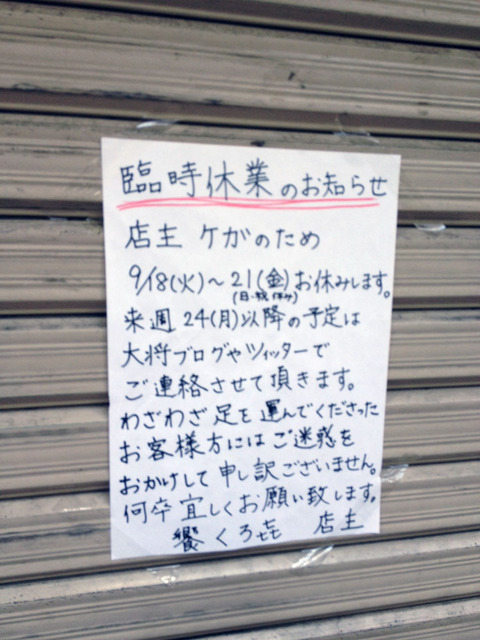 臨時休業のお知らせ
店主 ケガのため
9/18(火)～21(金)お休みします。
(日・祝休み)
来週 24(月)以降の予定は
大将ブログやツィッターで
ご連絡させて頂きます。
わざわざ足を運んでくださった
お客様方にはご迷惑を
おかけして申し訳ございません。
何卒宜しくお願い致します。
饗 くろ㐂 店主